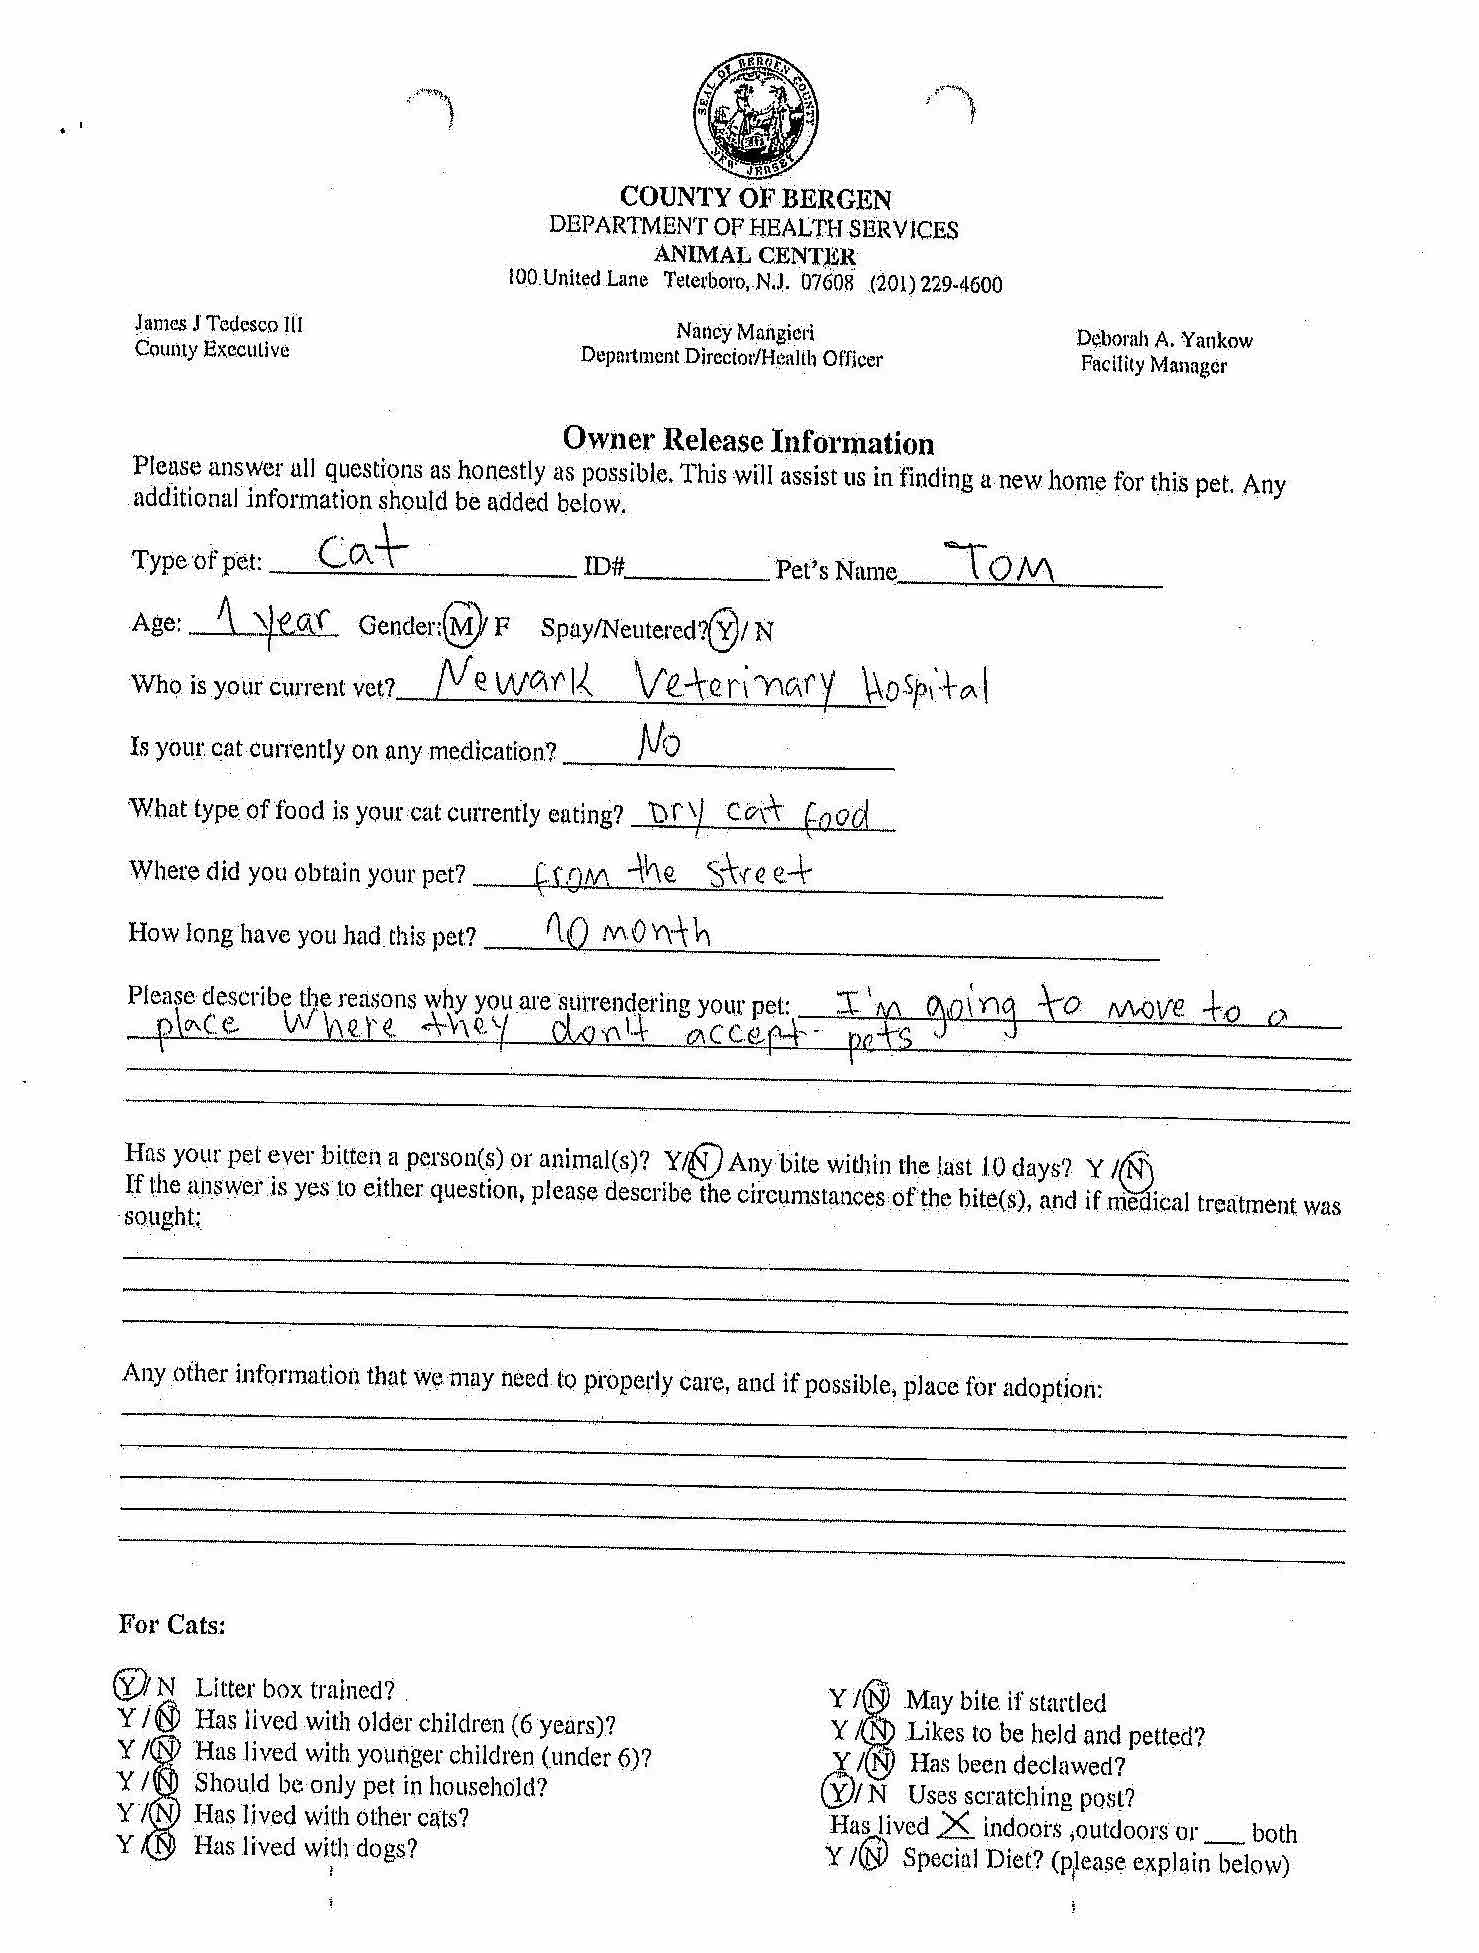 SEAL OF BERGEN COUNTY
NEW JERSEY
COUNTY OF BERGEN
DEPARTMENT OF HEALTH SERVICES
ANIMAL CENTER
100 United Lane Teterboro, N.J. 07608 (201) 229-4600
James J Tedesco III
County Executive
Nancy Mangieri
Department Director/Health Officer
Deborah A. Yankow
Facility Manager
Owner Release Information
Please answer all questions as honestly as possible. This will assist us in finding a new home for this pet. Any
additional information should be added below.
Type of pet: Cat ID# Pet's Name TOM
Age: 1 year Gender: M / F Spay/Neutered? Y / N
Who is your current vet? Newark Veterinary Hospital
Is your cat currently on any medication? No
What type of food is your cat currently eating? Dry cat food
Where did you obtain your pet? from the street
How long have you had this pet? 10 month
Please describe the reasons why you are surrendering your pet: I'm going to move to a
place where they don't accept pets
Has your pet ever bitten a person(s) or animal(s)? Y/N Any bite within the last 10 days? Y / N
If the answer is yes to either question, please describe the circumstances of the bite(s), and if medical treatment was
sought:
Any other information that we may need to properly care, and if possible, place for adoption:
For Cats:
Y/ N Litter box trained?
Y / N Has lived with older children (6 years)?
Y / N Has lived with younger children (under 6)?
Y / N Should be only pet in household?
Y / N Has lived with other cats?
Y / N Has lived with dogs?
Y / N May bite if startled
Y / N Likes to be held and petted?
Y / N Has been declawed?
Y/ N Uses scratching post?
Has lived X indoors ,outdoors or ___ both
Y / N Special Diet? (please explain below)